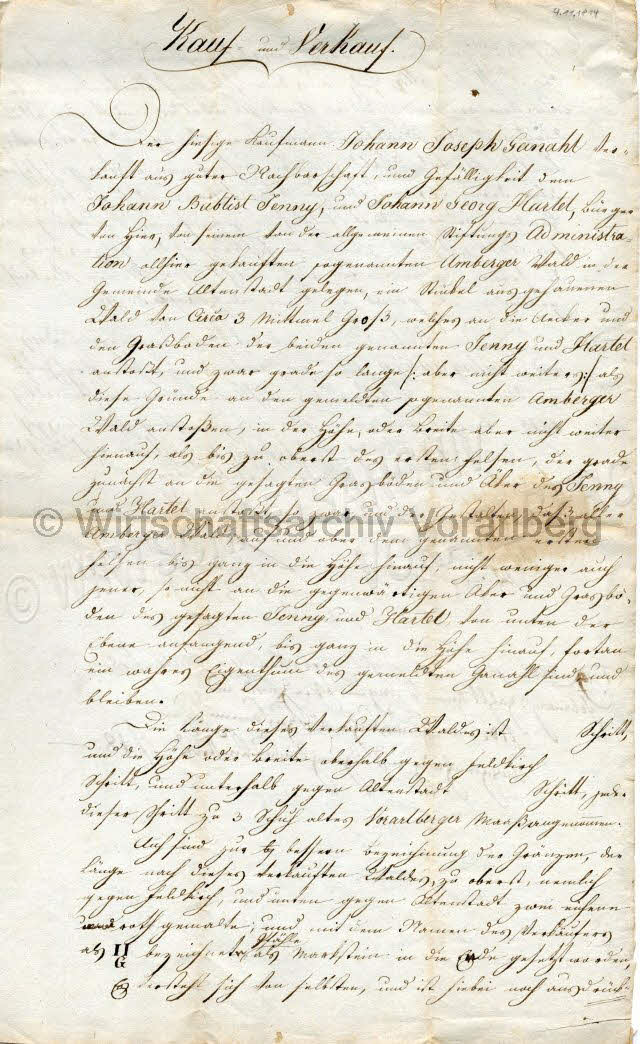 4.11.1814
Kauf- und Verkauf.
Der hiesige Kaufmann Johann Joseph Ganahl ver-
kauft aus guter Nachbarschaft, und Gefälligkeit dem
Johann Babtist Jenny, und Johann Georg Hartel, Bürger
von hier, von seinem von der allgemeinen Stiftungs Administra-
tion allhier gekauften sogenannten Amberger Wald in der
Gemeinde Altenstadt gelegen, ein Stückel ausgehauenen
Wald von Circa 3 Mittmel Groß, welches an die Aecker und
den Graßboden der beiden genannten Jenny und Hartel
anstoßt, und zwar grade so lange /: aber nicht weiters :/ als
diese Gründe an den gemeldten sogenannten Amberger
Wald anstoßen, in der Höhe, oder Breite aber nicht weiter
hinauf, als bis zu oberst des ersten Felsen, der grade
zunächst an die gesagten Grasböden und Äker des Jenny
und Hartel anstoßt, so zwar und der Gestalten, daß aller
Amberger Wald auf und ober dem genannten ersten
Felsen bis ganz in die Höhe hinauf, nicht weniger auch
jener, so nicht an die gegenwärtigen Äker und Grasbö-
den des gesagten Jenny und Hartel, von unten der
Ebene anfangend, bis ganz in die Höhe hinauf, fortan
ein wahres Eigenthum des gemeldten Ganahl sind, und
bleiben.
Die Länge dieses verkauften Waldes ist Schritt,
und die Höhe oder Breite oberhalb gegen Feldkirch
Schritt, und unterhalb gegen Altenstadt Schritt, jeder
dieser Schritt zu 3 Schuh altes Vorarlberger Maaß angenommen.
Auch sind zur bessern Bezeichnung der Gränzen, der
Länge nach dieses verkauften Waldes, zu oberst, nemlich
gegen Feldkirch, und unten gegen Altenstadt zwei eichene
roth gemalte, und mit dem Namen des Verkäufers
als II G bezeichnete Pfähle als Markstein in die Erde gesetzt worden,
Es versteht sich von selbsten, und ist hiebei noch ausdrück-
© Wirtschaftsarchiv Vorarlberg